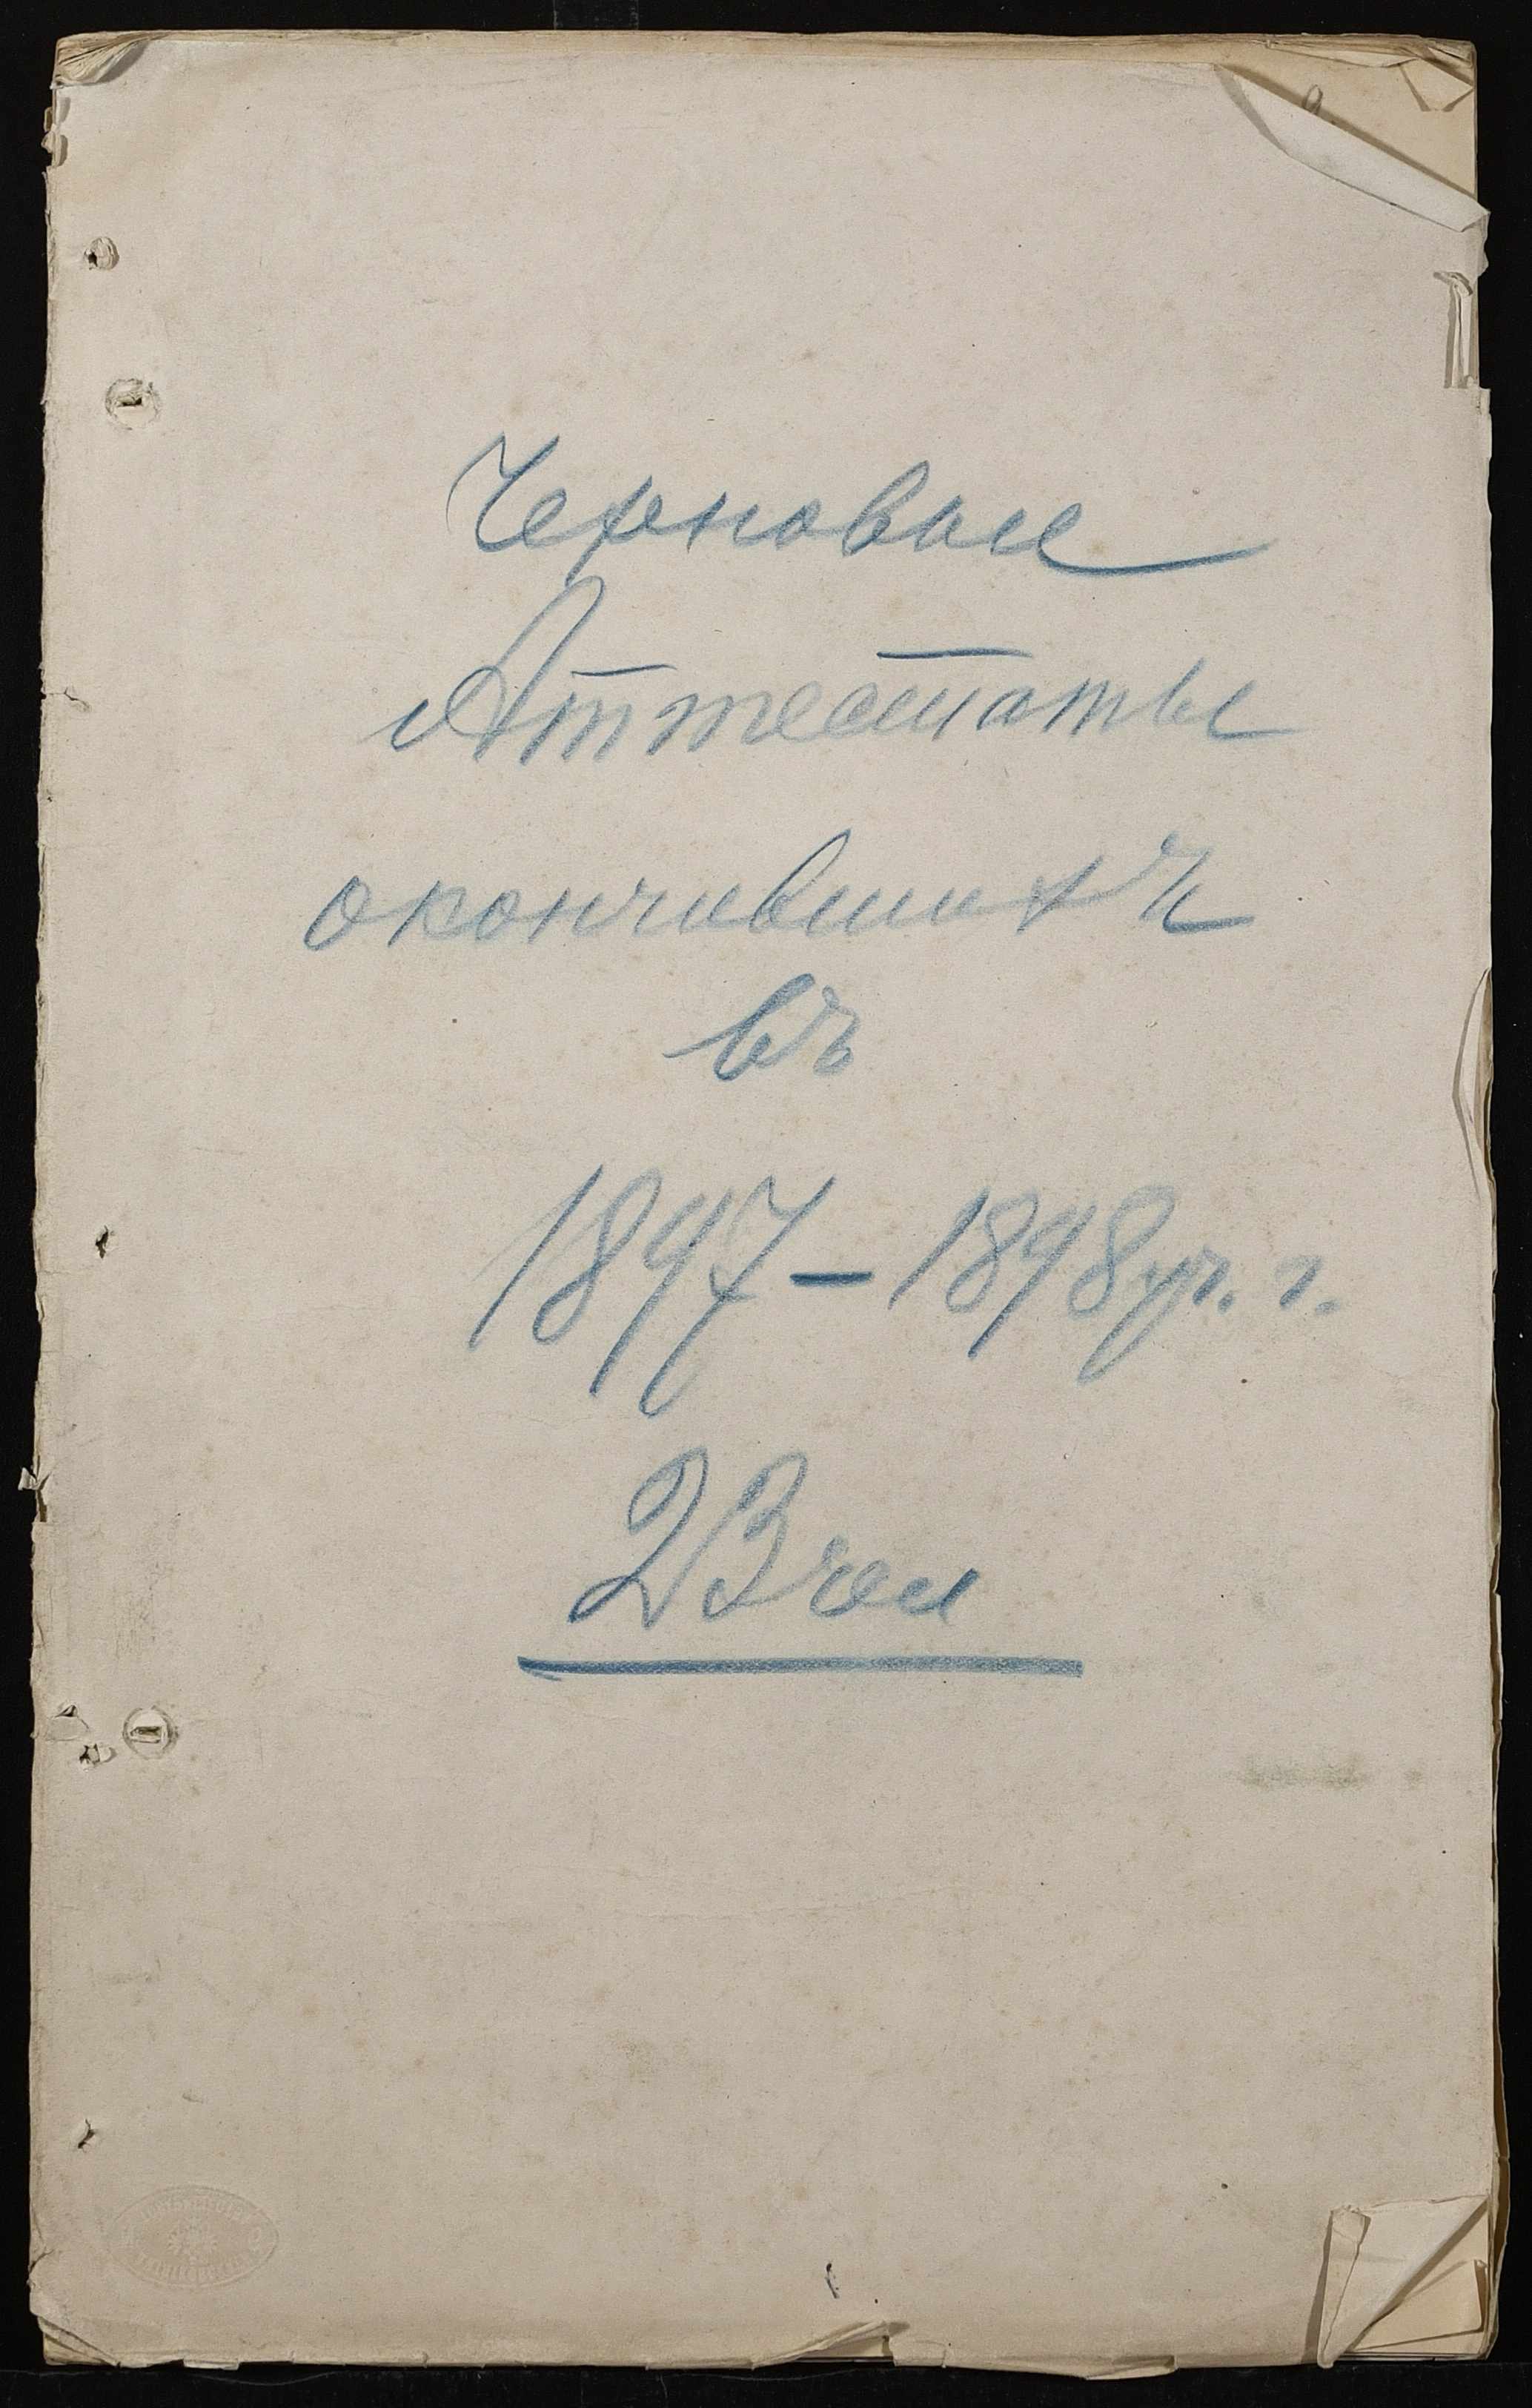 Черновые
Аттестаты
окончившихъ
въ
1897-1898 уч. г.